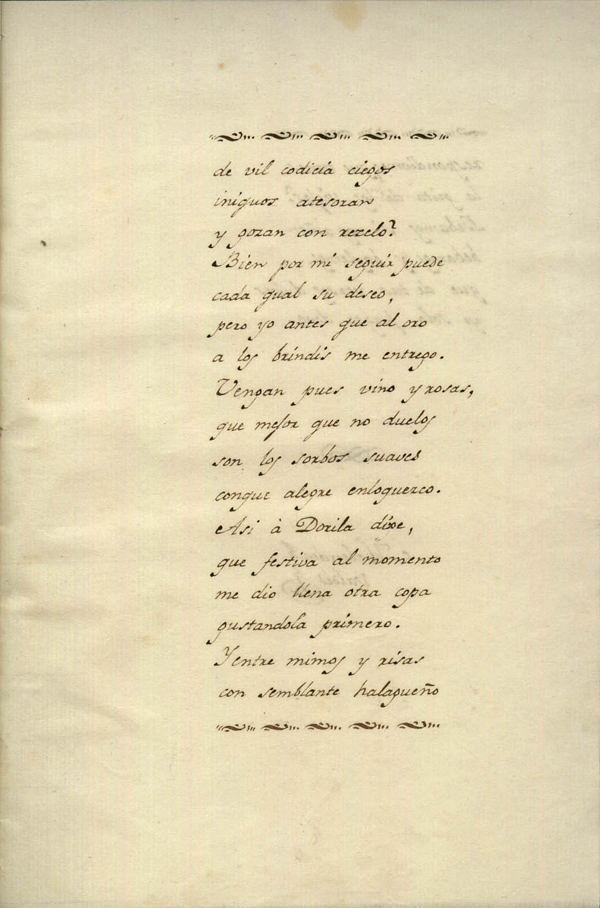 de vil codicia ciegos
iniquos atesoran
y gozan con rezelo?
Bien por mí seguir puede
cada qual su deseo,
pero yo antes que al oro
a los brindis me entrego.
Vengan pues vino y rosas,
que mejor que no duelos
son los sorbos suaves
conque alegre enloquezco.
Asi à Dorila dixe,
que festiva al momento
me dio llena otra copa
gustandola primero.
Y entre mimos y risas
con semblante halagueño